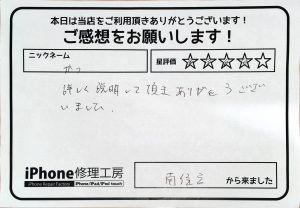 本日は当店をご利用頂きありがとうございます!
ご感想をお願いします!
ニックネーム
星評価
☆☆☆☆☆
詳しく説明して頂きありがとうござ
いました
iPhone修理工房
iPhone Repair Factory
iPhone/iPad/iPod touch
から来ました